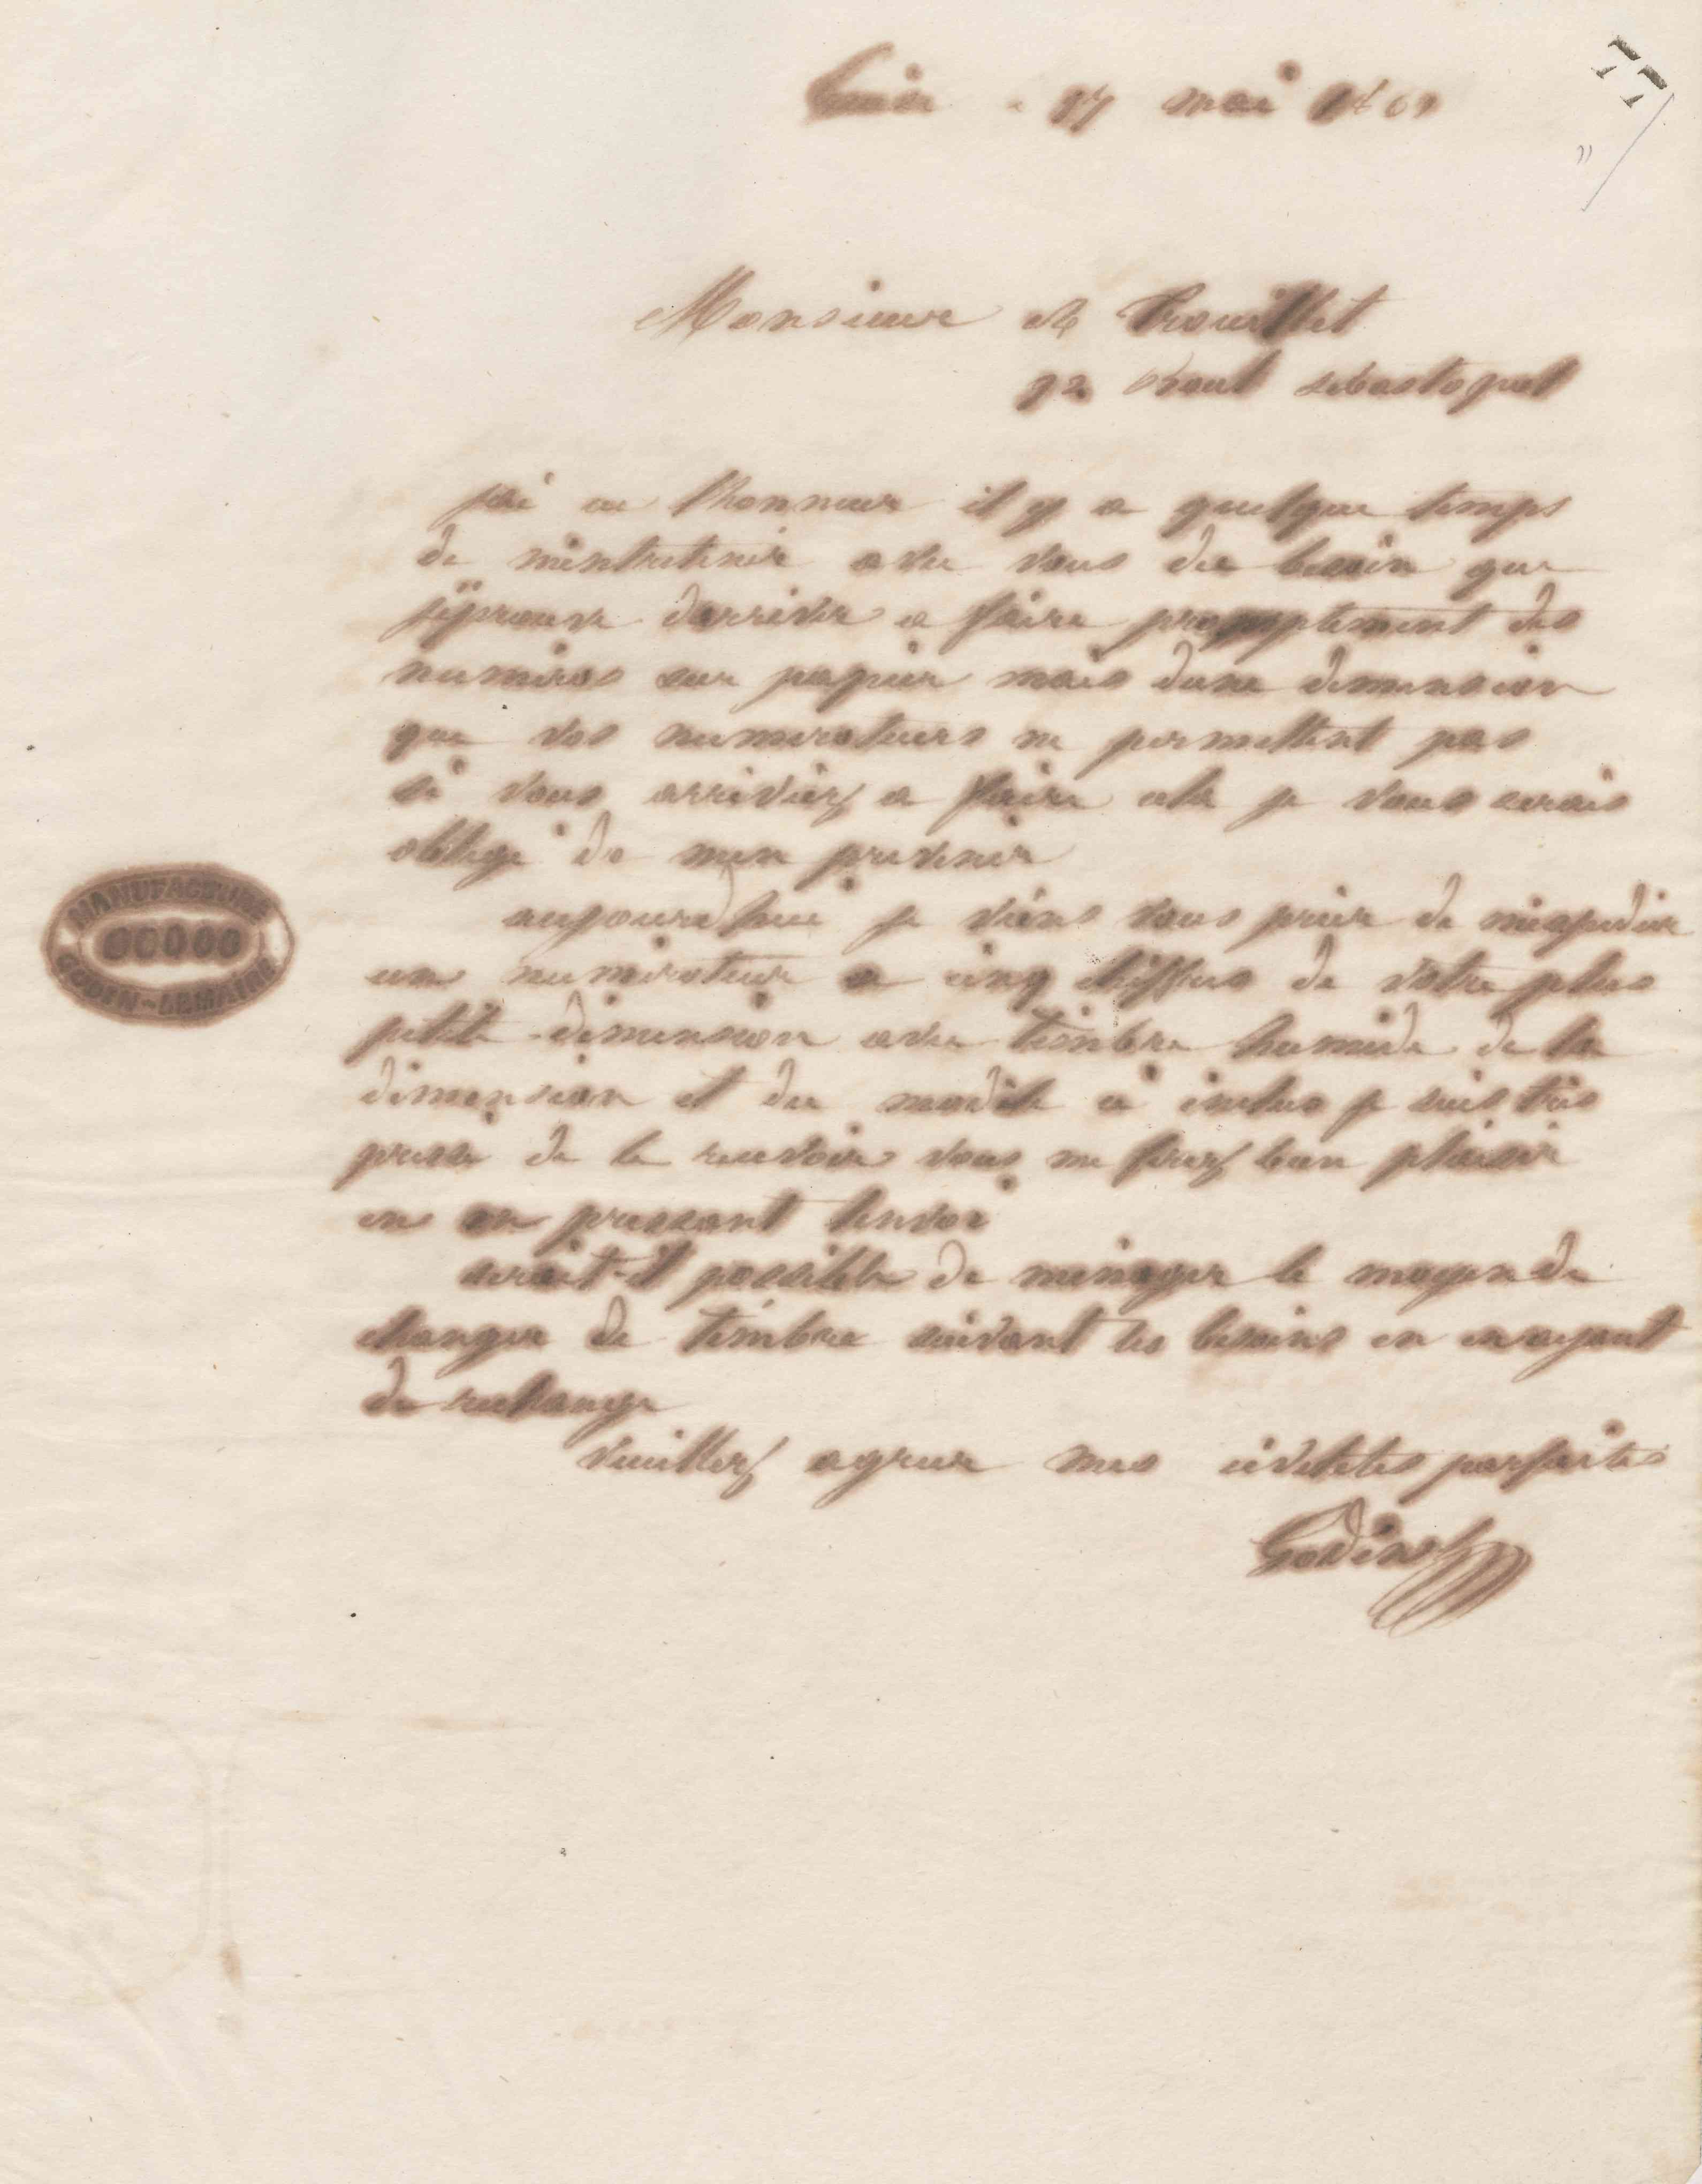 77
Guise 27 mai 1861
Monsieur A Trouillet
92 Boult sebastopol
jai eu lhonneur il y a quelque temps
de mentretenir avec vous du besoin que
jéprouve darriver a faire promptement des
numeros sur papier mais dune dimension
que vos numeroteurs ne permettent pas
si vous arriviez a faire cela je vous serais
obligé de men prevenir
aujourdhui je viens vous prier de mexpedier
un numeroteur a cinq chiffres de votre plus
petite dimension avec timbre humide de la
dimension et du modele ci inclus je suis très
pressé de le recevoir vous me ferez bien plaisir
en en pressant lenvoi
serait-il possible de menager le moyen de
changer de timbre suivant les besoins en en ayant
de rechange
Veuillez agreer mes civilites parfaites
Godin
MANUFACTURE
00000
GODIN-LEMAIRE